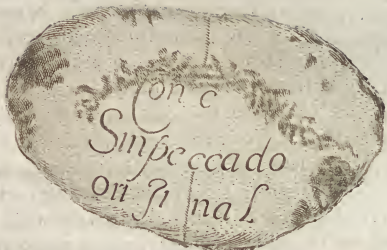 Con c
Sinpeccado
Ori gi nal